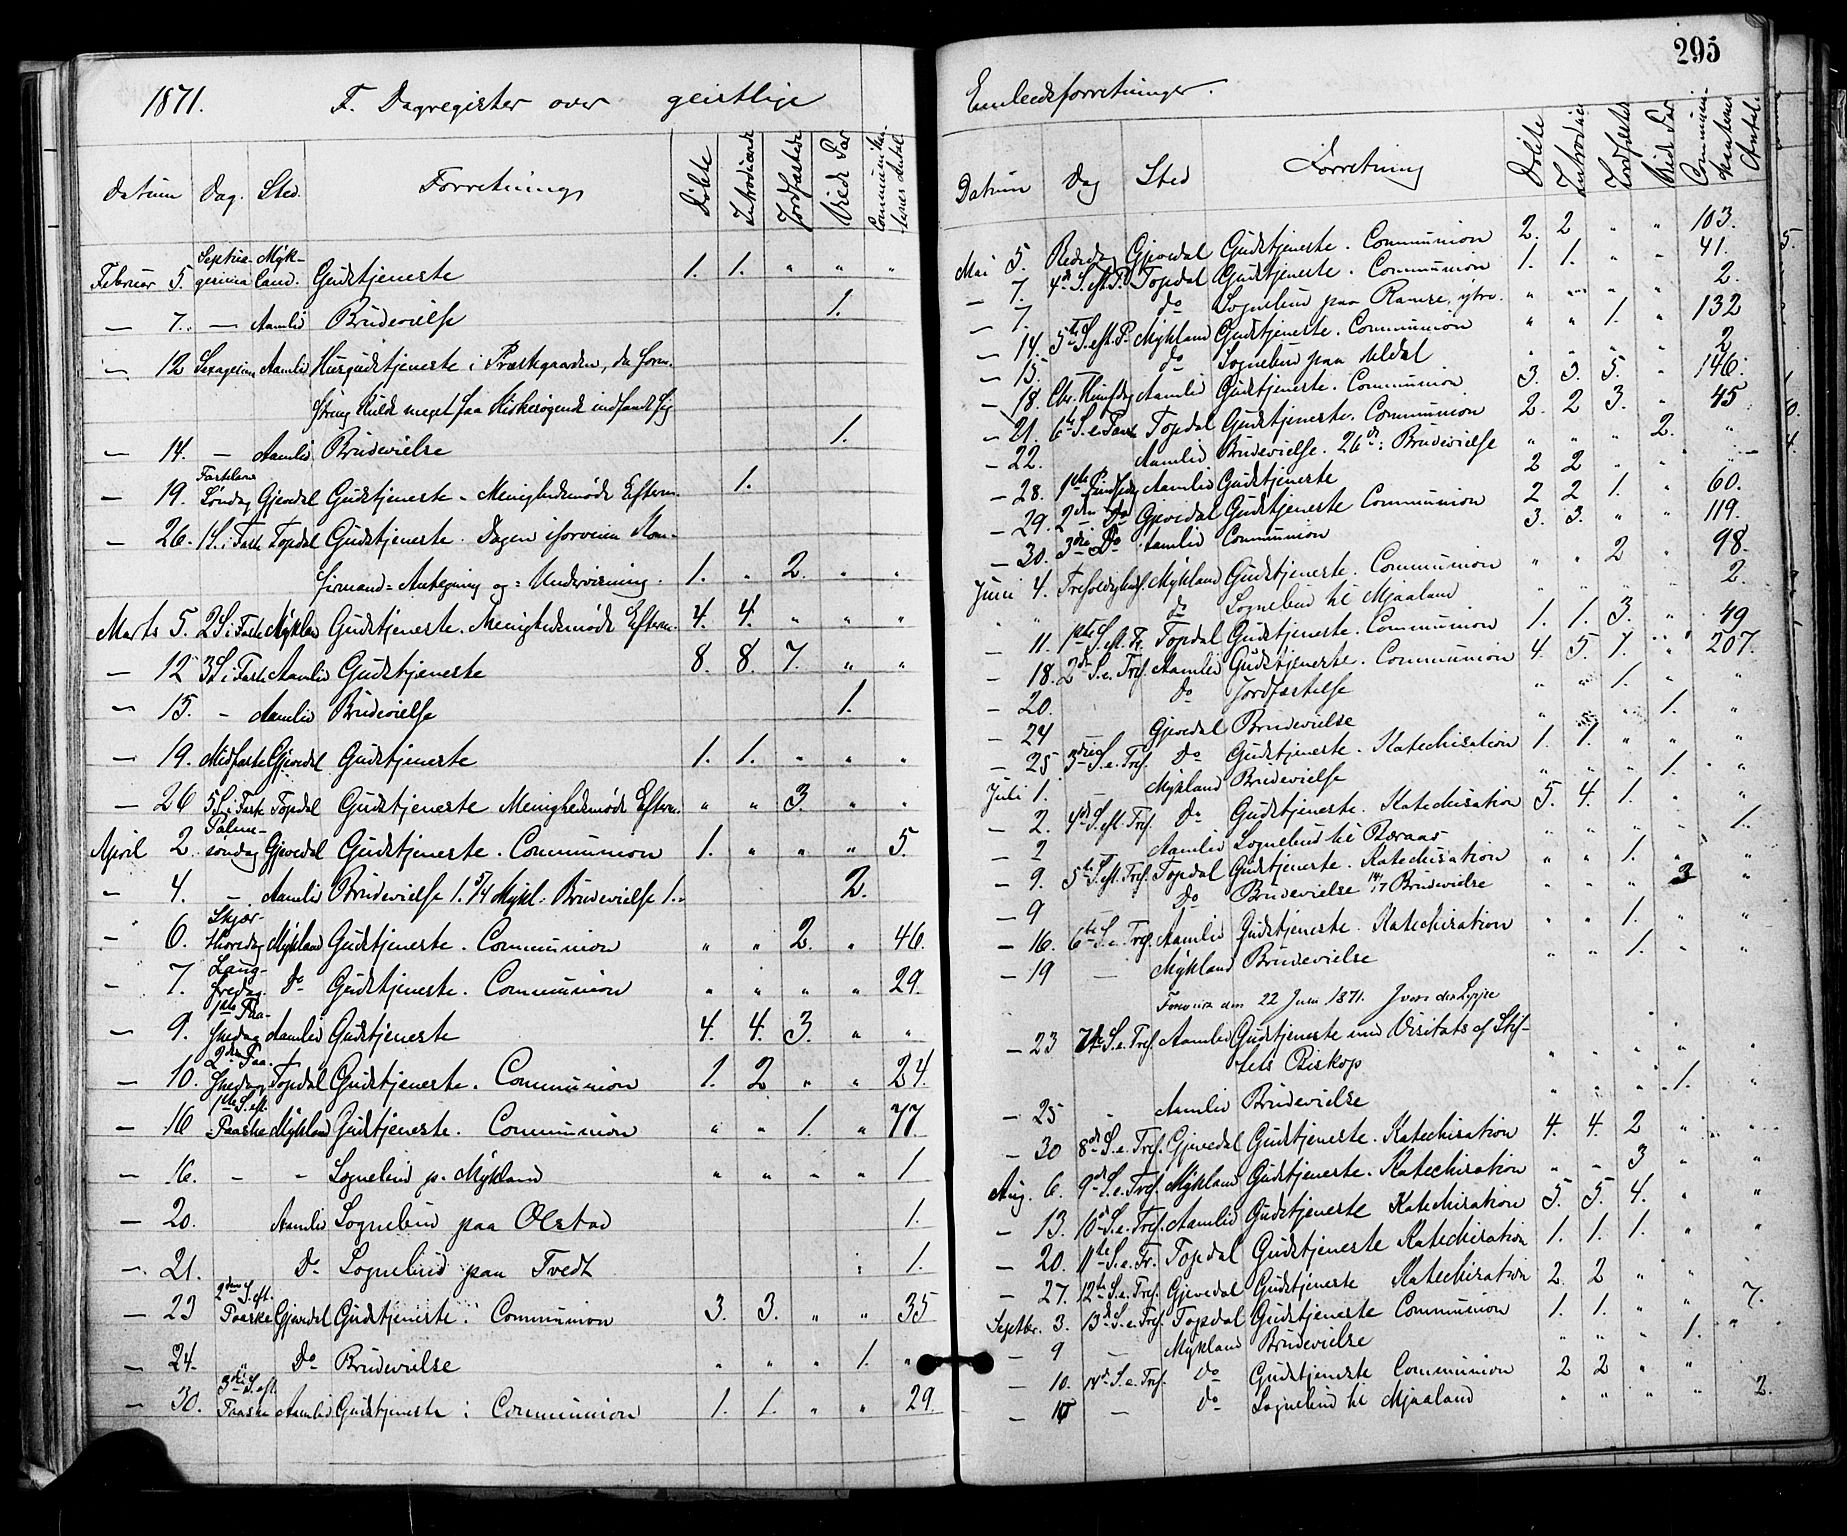 1871. F. Dagregister over geistlige
Datum Dag. Sted. Forretning Döbte Introducerede Jordfæstede Viede Par Communikanternes Antal
Februar 5. Septuagesima Mykland. Gudstjeneste 1. 1. " " "
— 7. — Aamlid Brudevielse 1.
— 12 Sexagesima Aamlid Husgudstjeneste i Præstegaarden, da
Kulde meget faa Kirkesøgende indfandt sig
— 14. — Aamlid Brudevielse 1.
— 19. Fastelavns Söndag Gjevedal Gudstjeneste - Menighedsmøde Efterm. 1.
— 26. 1 S. i Faste Topdal Gudstjeneste. Dagen iforveien Kon-
firmand=Antegning og = Undervisning. 1. " 2. " "
Marts 5. 2 S i Faste Mykland Gudstjeneste. Menighedsmøde Efterm. 4. 4. " " "
— 12 3 S i Faste Aamlid Gudstjeneste 8. 8. 7. " "
— 15. — Aamlid Brudevielse 1.
— 19. Midfaste Gjevedal Gudstjeneste 1. 1. " " "
— 26 5 S i Faste Topdal Gudstjeneste Menighedsmøde Efterm. " " 3. " "
April 2 Palmesöndag Gjevedal Gudstjeneste. Communion 1. " " " 5.
— 4. — Aamlid Brudevielse 1. 5/4 Mykl. Brudevielse 1. 2.
" 6. Skjærthorsdag Mykland Gudstjeneste. Communion " " 2. " 46.
— 7. Langfredag Do Gudstjeneste. Communion " " " " 29.
— 9. 1ste Paaskedag Aamlid Gudstjeneste 4. 4. 3. " "
— 10. 2den Paaskedag Topdal Gudstjeneste. Communion 1. 2 " " 24.
— 16 1ste S. eft. Paaske Mykland Gudstjeneste. Communion " " 1. " 77.
— 16. — " Sognebud p. Mykland " " " " 1.
— 20. Aamlid Sognebud paa Olstad 1.
— 21. Do Sognebud paa Tvedt 1.
— 23 2den S. eft. Paaske Gjevedal Gudstjeneste. Communion 3. 3. " " 35
— 24. " Do Brudevielse " " " 1. "
— 30. 3die S. eft. Paaske Aamlid Gudstjeneste. Communion 1. 1. " " 29.
295
Embedsforretninger.
Datum Dag Sted Forretning Döbte Introducerede Jordfæstede Viede Par Communikanternes Antal
Mai 5. Bededag Gjevedal Gudstjeneste. Communion 2. 2 " " 103.
— 7. 4de S. eft. P. Topdal Gudstjeneste. Communion 1. 1. " " 41.
— 7. do Sognebud paa Ramse, ytre. " " " " 2.
— 14. 5te S. eft. P. Mykland Gudstjeneste. Communion " " 1. " 132
— 15. do Sognebud paa Uldal " " " " 2
— 18. Chr. Himfdag Aamlid Gudstjeneste. Communion 3. 3. 5. " 146.
— 21. 6te S. e Paas Topdal Gudstjeneste. Communion 2. 2 3. " 45
— 22. Aamlid Brudevielse. 26de: Brudevielse " " " 2. "
— 28. 1ste Pintsedag Aamlid Gudstjeneste 2 2 " " "
— 29. 2den Do Gjevedal Gudstjeneste Communion 2 2 1. " 60.
— 30. 3die Do Aamlid Communion 3. 3. " " 119.
Juni 4. Trefoldighed. Mykland Gudstjeneste. Communion " " 2 " 98.
" " do Sognebud til Mjaaland " " " " 2.
— 11. 1ste S. eft. Tr. Topdal Gudstjeneste. Communion 1. 1. 3. " 49
— 18. 2den S. e. Tref. Aamlid Gudstjeneste. Communion 4. 5. 1. " 207.
— 20. do Jordfæstelse " " 1. " "
— 24 Gjevedal Brudevielse " " " 1. "
— 25 3die S. e. Tref. Do Gudstjeneste. Katechisation 1. 1. " " "
Juli 1. Mykland Brudevielse " " " 1. "
— 2. 4de S. eft. Tref. Do Gudstjeneste. Katechisation 5. 4. 1. " "
— 2 — Aamlid Sognebud til Beraas " " " " 1.
— 9. 5te S. eft. Tref. Topdal Gudstjeneste. Katechisation " " 1. " "
— 9 Do Brudevielse 14/7 Brudevielse " " " 3 "
— 16. 6te S. e. Tref. Aamlid Gudstjeneste. Katechisation " " 1. " "
— 19 — Mykland Brudevielse " " 1. " "
den 22 Juni 1871.
— 23 7de S. e. Tref. Aamlid Gudstjeneste med Visitats af Stif-
tets Biskop " " " " "
— 25 - Aamlid Brudevielse " " " 1. "
— 30 8de S. e. Tref. Gjevedal Gudstjeneste. Katechisation 4. 4. 2 " "
Aug. 6. 9de S. e. Tref. Mykland Gudstjeneste. Katechisation " " 3 " "
— 13. 10de S. e. Tref. Aamlid Gudstjeneste Katechisation 5. 5. 4. " "
— 20. 11te S. e. Tr. Topdal Gudstjeneste Katechisation 1. 1. 1. " "
— 27. 12te S. e. Tref. Gjevedal Gudstjeneste Katechisation 2. 2 " " "
Septbr. 3. 13de S. e. Tref. Topdal Gudstjeneste Communion 1. 1. " " 7.
— 9 — Mykland Brudevielse " " " 1. "
— 10. 14de S. e. Tref. Do Gudstjeneste Communion 2 2 " "
— 10 — Do Sognebud til Mjaaland " " " " 2.